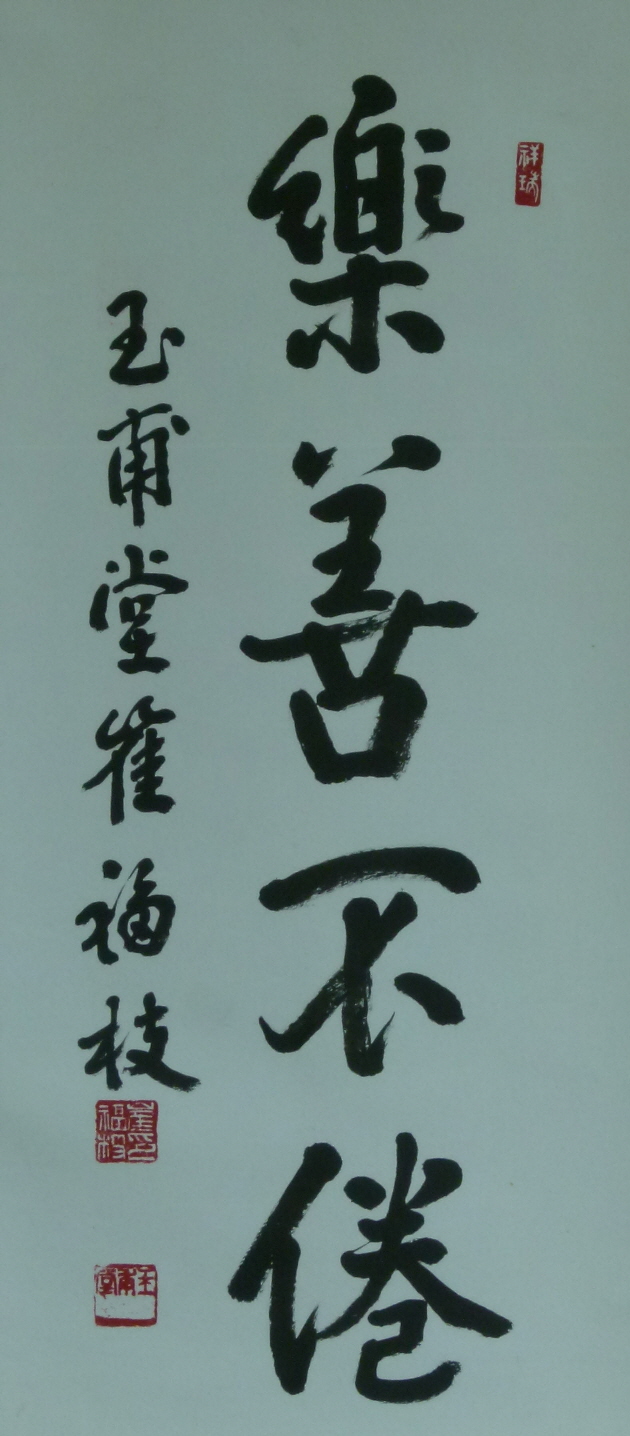 樂善不倦
玉甫堂崔福枝
崔福枝印
玉甫堂